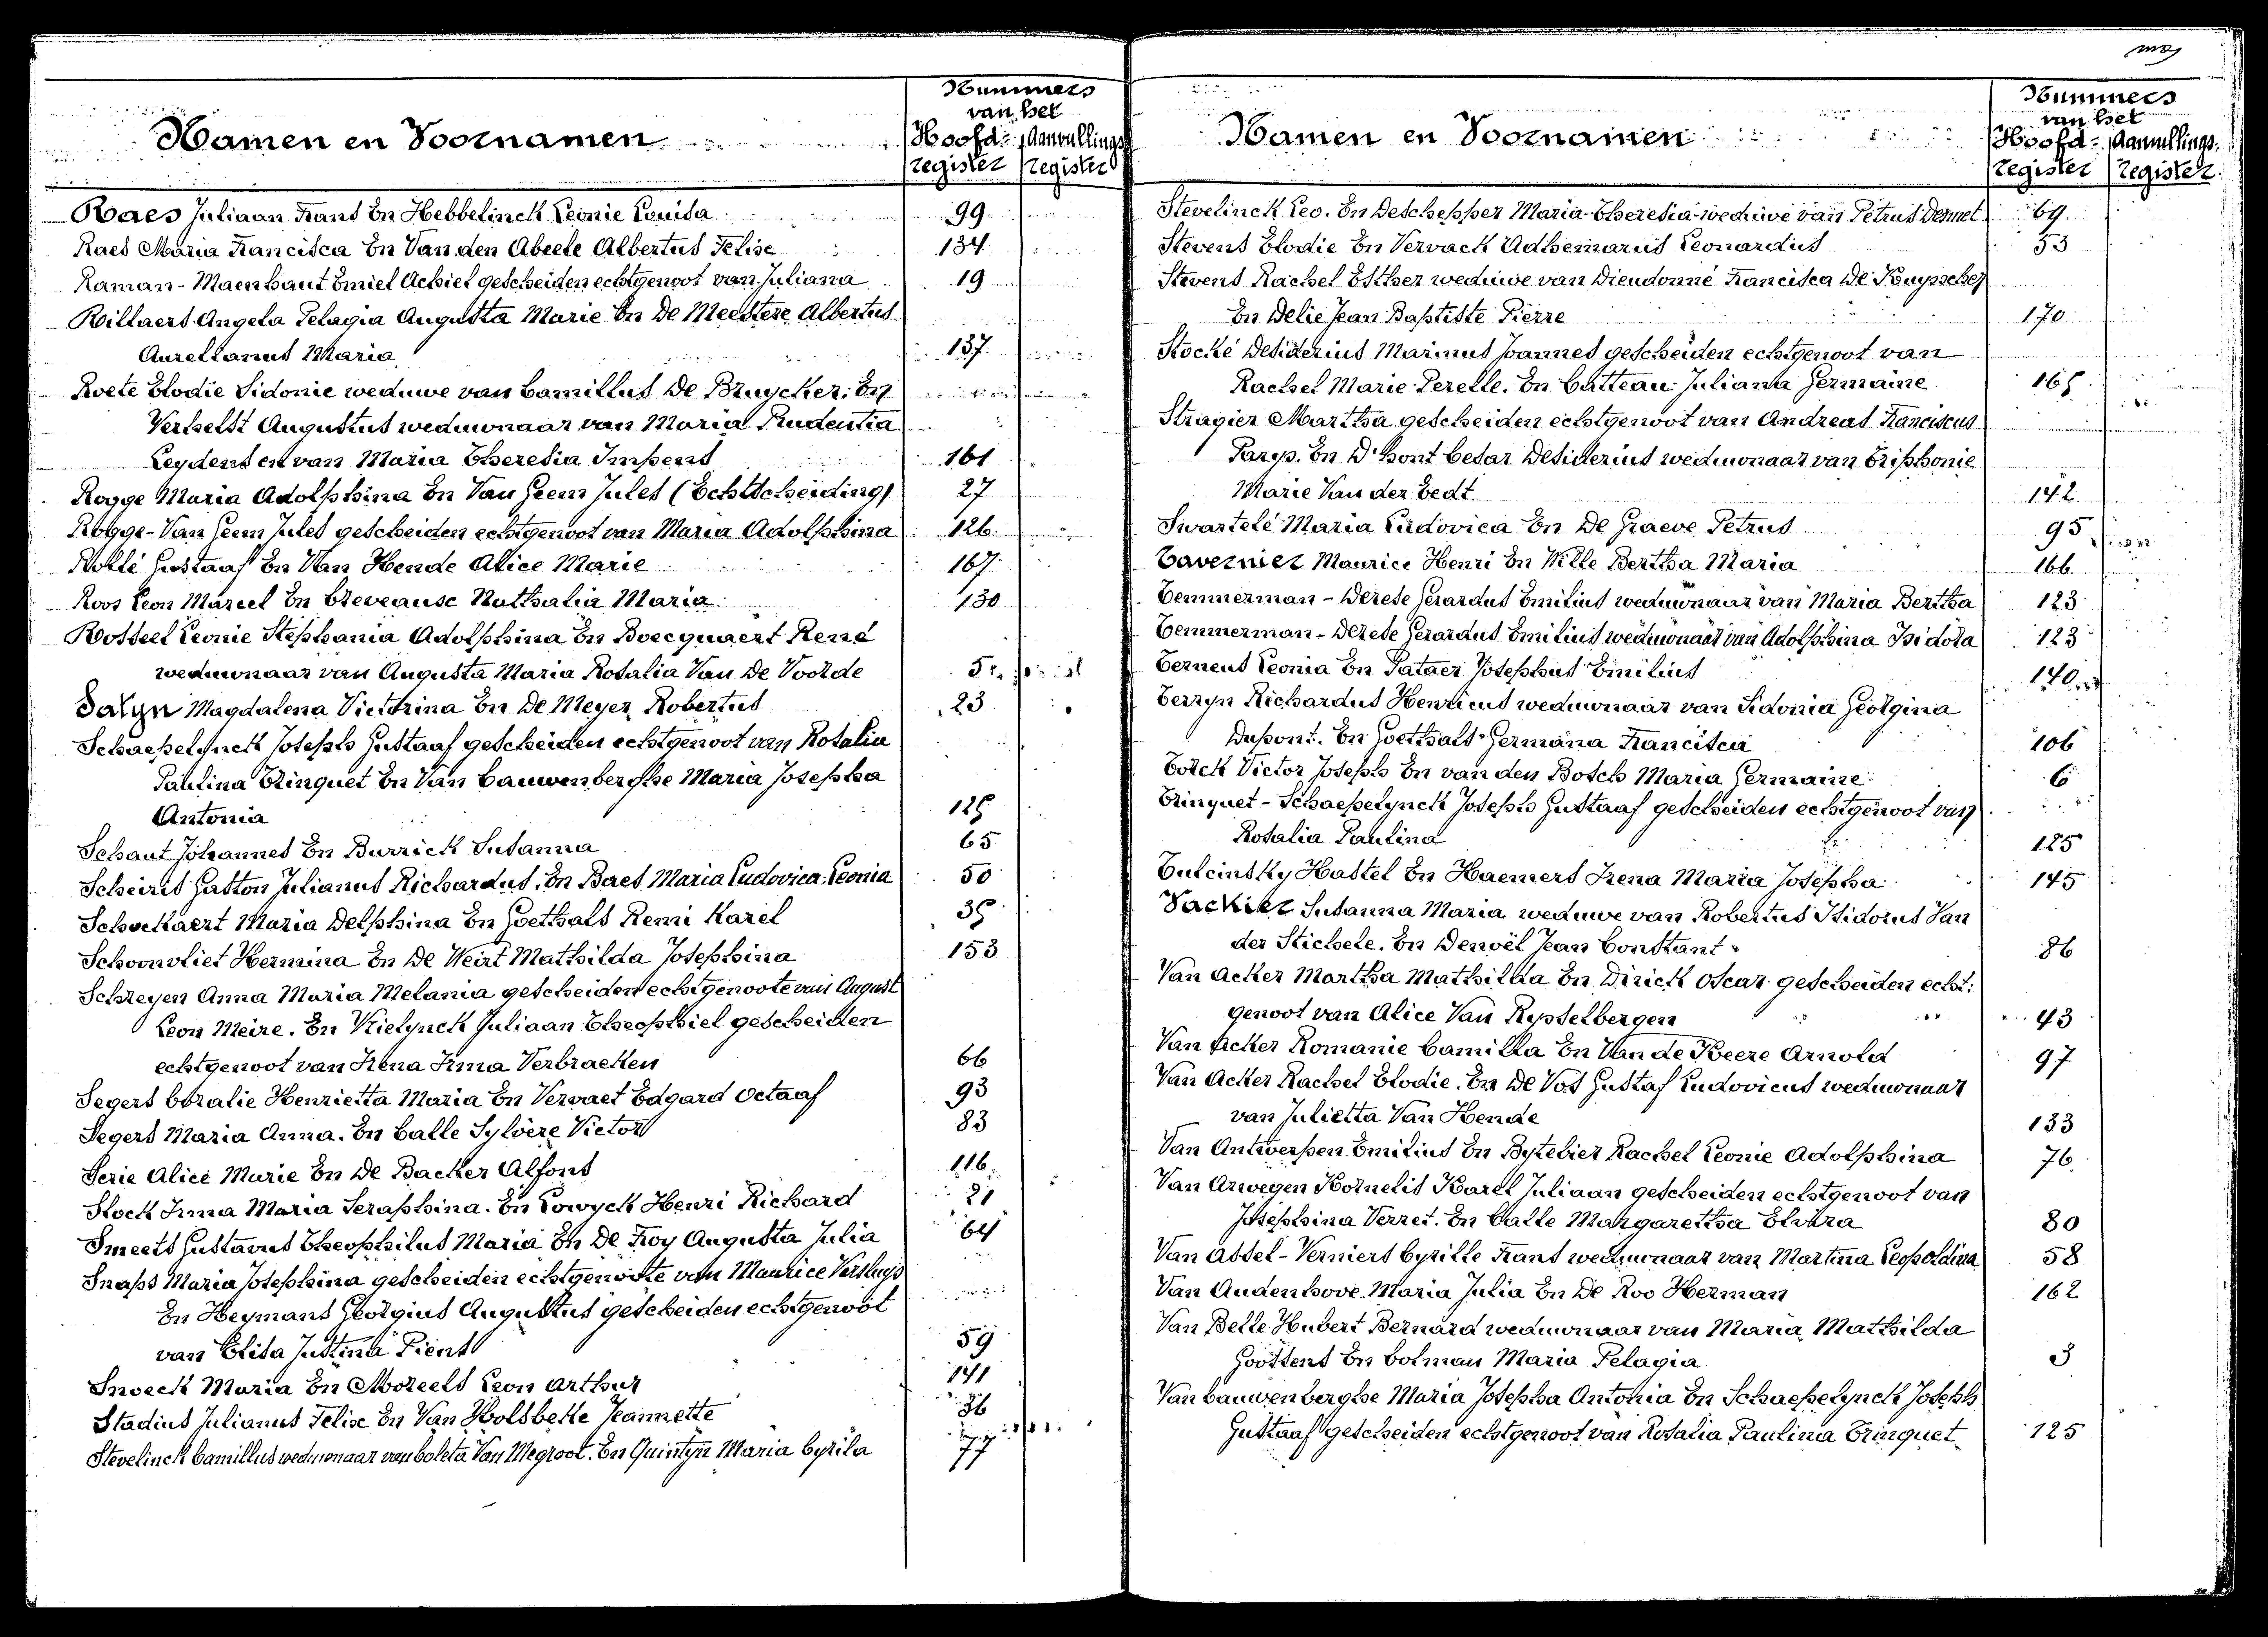 Namen en Voornamen
Nummers
van het
Hoofd- Aanvullings
register register
Raes Juliaan Frans En Hebbelinck Leonie Louisa 99
Raes Maria Francisca En Van den Abeele Albertus Felix 134
Raman - Maenhaut Emiel Achiel gescheiden echtgenoot van Juliana 19
Rillaers Angela Pelagia Augusta Marie En De Meestere Albertus
Aurelianus Maria 137
Roete Elodie Sidonie weduwe van Camillus De Bruycker. En
Verhelst Augustus weduwnaar van Maria Prudentia
Leydens en van Maria Theresia Impens 161
Rogge Maria Adolphina En Van Geem Jules (Echtscheiding) 27
Rogge-Van Geem Jules gescheiden echtgenoot van Maria Adolphina 126
Rollé Gustaaf En Van Hende Alice Marie 167
Roos Leon Marcel En Creveause Nathalia Maria 130
Rosseel Leonie Stephania Adolphina En Boecquaert René
weduwnaar van Augusta Maria Rosalia Van De Voorde 5
Salyn Magdalena Victorina En De Meyer Robertus 23
Schaepelynck Joseph Gustaaf gescheiden echtgenoot van Rosalia
Paulina Trinquet En Van Cauwenberghe Maria Josepha
Antonia 125
Schaut Johannes En Burrick Susanna 65
Scheiris Gaston Julianus Richardus. En Baes Maria Ludovica Leonia 50
Schockaert Maria Delphina En Goethals Remi Karel 35
Schoonvliet Hermina En De Weirt Mathilda Josephina 153
Schreyen Anna Maria Melania gescheiden echtgenoote van August
Leon Meire. En Vrielynck Juliaan Theophiel gescheiden
echtgenoot van Irena Irma Verbraeken 66
Segers Coralie Henrietta Maria En Vervaet Edgard Octaaf 93
Segers Maria Anna. En Calle Sylvère Victor 83
Serie Alice Marie En De Backer Alfons 116
Slock Irma Maria Seraphina. En Lowyck Henri Richard 21
Smeets Gustavus Theophilus Maria En De Roy Augusta Julia 64
Snaps Maria Josephina gescheiden echtgenoote van Maurice Versluys
En Heymans Georgius Augustus gescheiden echtgenoot
van Elisa Justina Piens 59
Snoeck Maria En Moreels Leon Arthur 141
Stadius Julianus Felix En Van Holsbeke Jeannette 36
Stevelinck Camillus weduwnaar van Coleta Van Megroot. En Quintyn Maria Cyrila 77
Namen en Voornamen
Nummers
van het
Hoofd- Aanvullings.
register register.
Stevelinck Leo. En Deschepper Maria Theresia weduwe van Petrus Dermet 69
Stevens Elodie En Vervack Adhemarus Leonardus 53
Stevens Rachel Esther weduwe van Dieudonné Francisca De Kuyscher
En Delie Jean Baptiste Pierre 170
Stocké Desiderius Marinus Joannes gescheiden echtgenoot van
Rachel Marie Perelle. En Catteau Juliana Germaine 165
Stragier Martha gescheiden echtgenoot van Andreas Franciscus
Parys. En D'hont Cesar Desiderius weduwnaar van Eriphonie
Marie Van der Eedt 142
Swartelé Maria Ludovica En De Graeve Petrus 95
Tavernier Maurice Henri En Wille Bertha Maria 166
Temmerman - Derese Gerardus Emilius weduwnaar van Maria Bertha 123
Temmerman - Derese Gerardus Emilius weduwnaar van Adolphina Isidora 123
Terneus Leonia En Pataer Josephus Emilius 140
Terryn Richardus Henricus weduwnaar van Sidonia Georgina
Dupont. En Goethals Germana Francisca 106
Torck Victor Joseph En van den Bosch Maria Germaine 6
Trinquet - Schaepelynck Joseph Gustaaf gescheiden echtgenoot van
Rosalia Paulina 125
Tulcinsky Hastel En Haemers Irena Maria Josepha 145
Vackier Susanna Maria weduwe van Robertus Isidorus Van
der Stichele. En Denoël Jean Constant 86
Van Acker Martha Mathilda En Dirick Oscar gescheiden echt-
genoot van Alice Van Rysselbergen 43
Van Acker Romanie Camilla En Van de Keere Arnold 97
Van Acker Rachel Elodie. En De Vos Gustaf Ludovicus weduwnaar
van Julietta Van Hende 133
Van Antwerpen Emilius En Bytebier Rachel Leonie Adolphina 76
Van Arwegen Kornelis Karel Juliaan gescheiden echtgenoot van
Josephina Verret. En Calle Margaretha Elvira 80
Van Assel - Verniers Cyrille Frans weduwnaar van Martina Leopoldina 58
Van Audenhove Maria Julia En De Roo Herman 162
Van Belle Hubert Bernard weduwnaar van Maria Mathilda
Goossens En Colman Maria Pelagia 3
Van Cauwenberghe Maria Josepha Antonia En Schaepelynck Joseph
Gustaaf gescheiden echtgenoot van Rosalia Paulina Trinquet 125